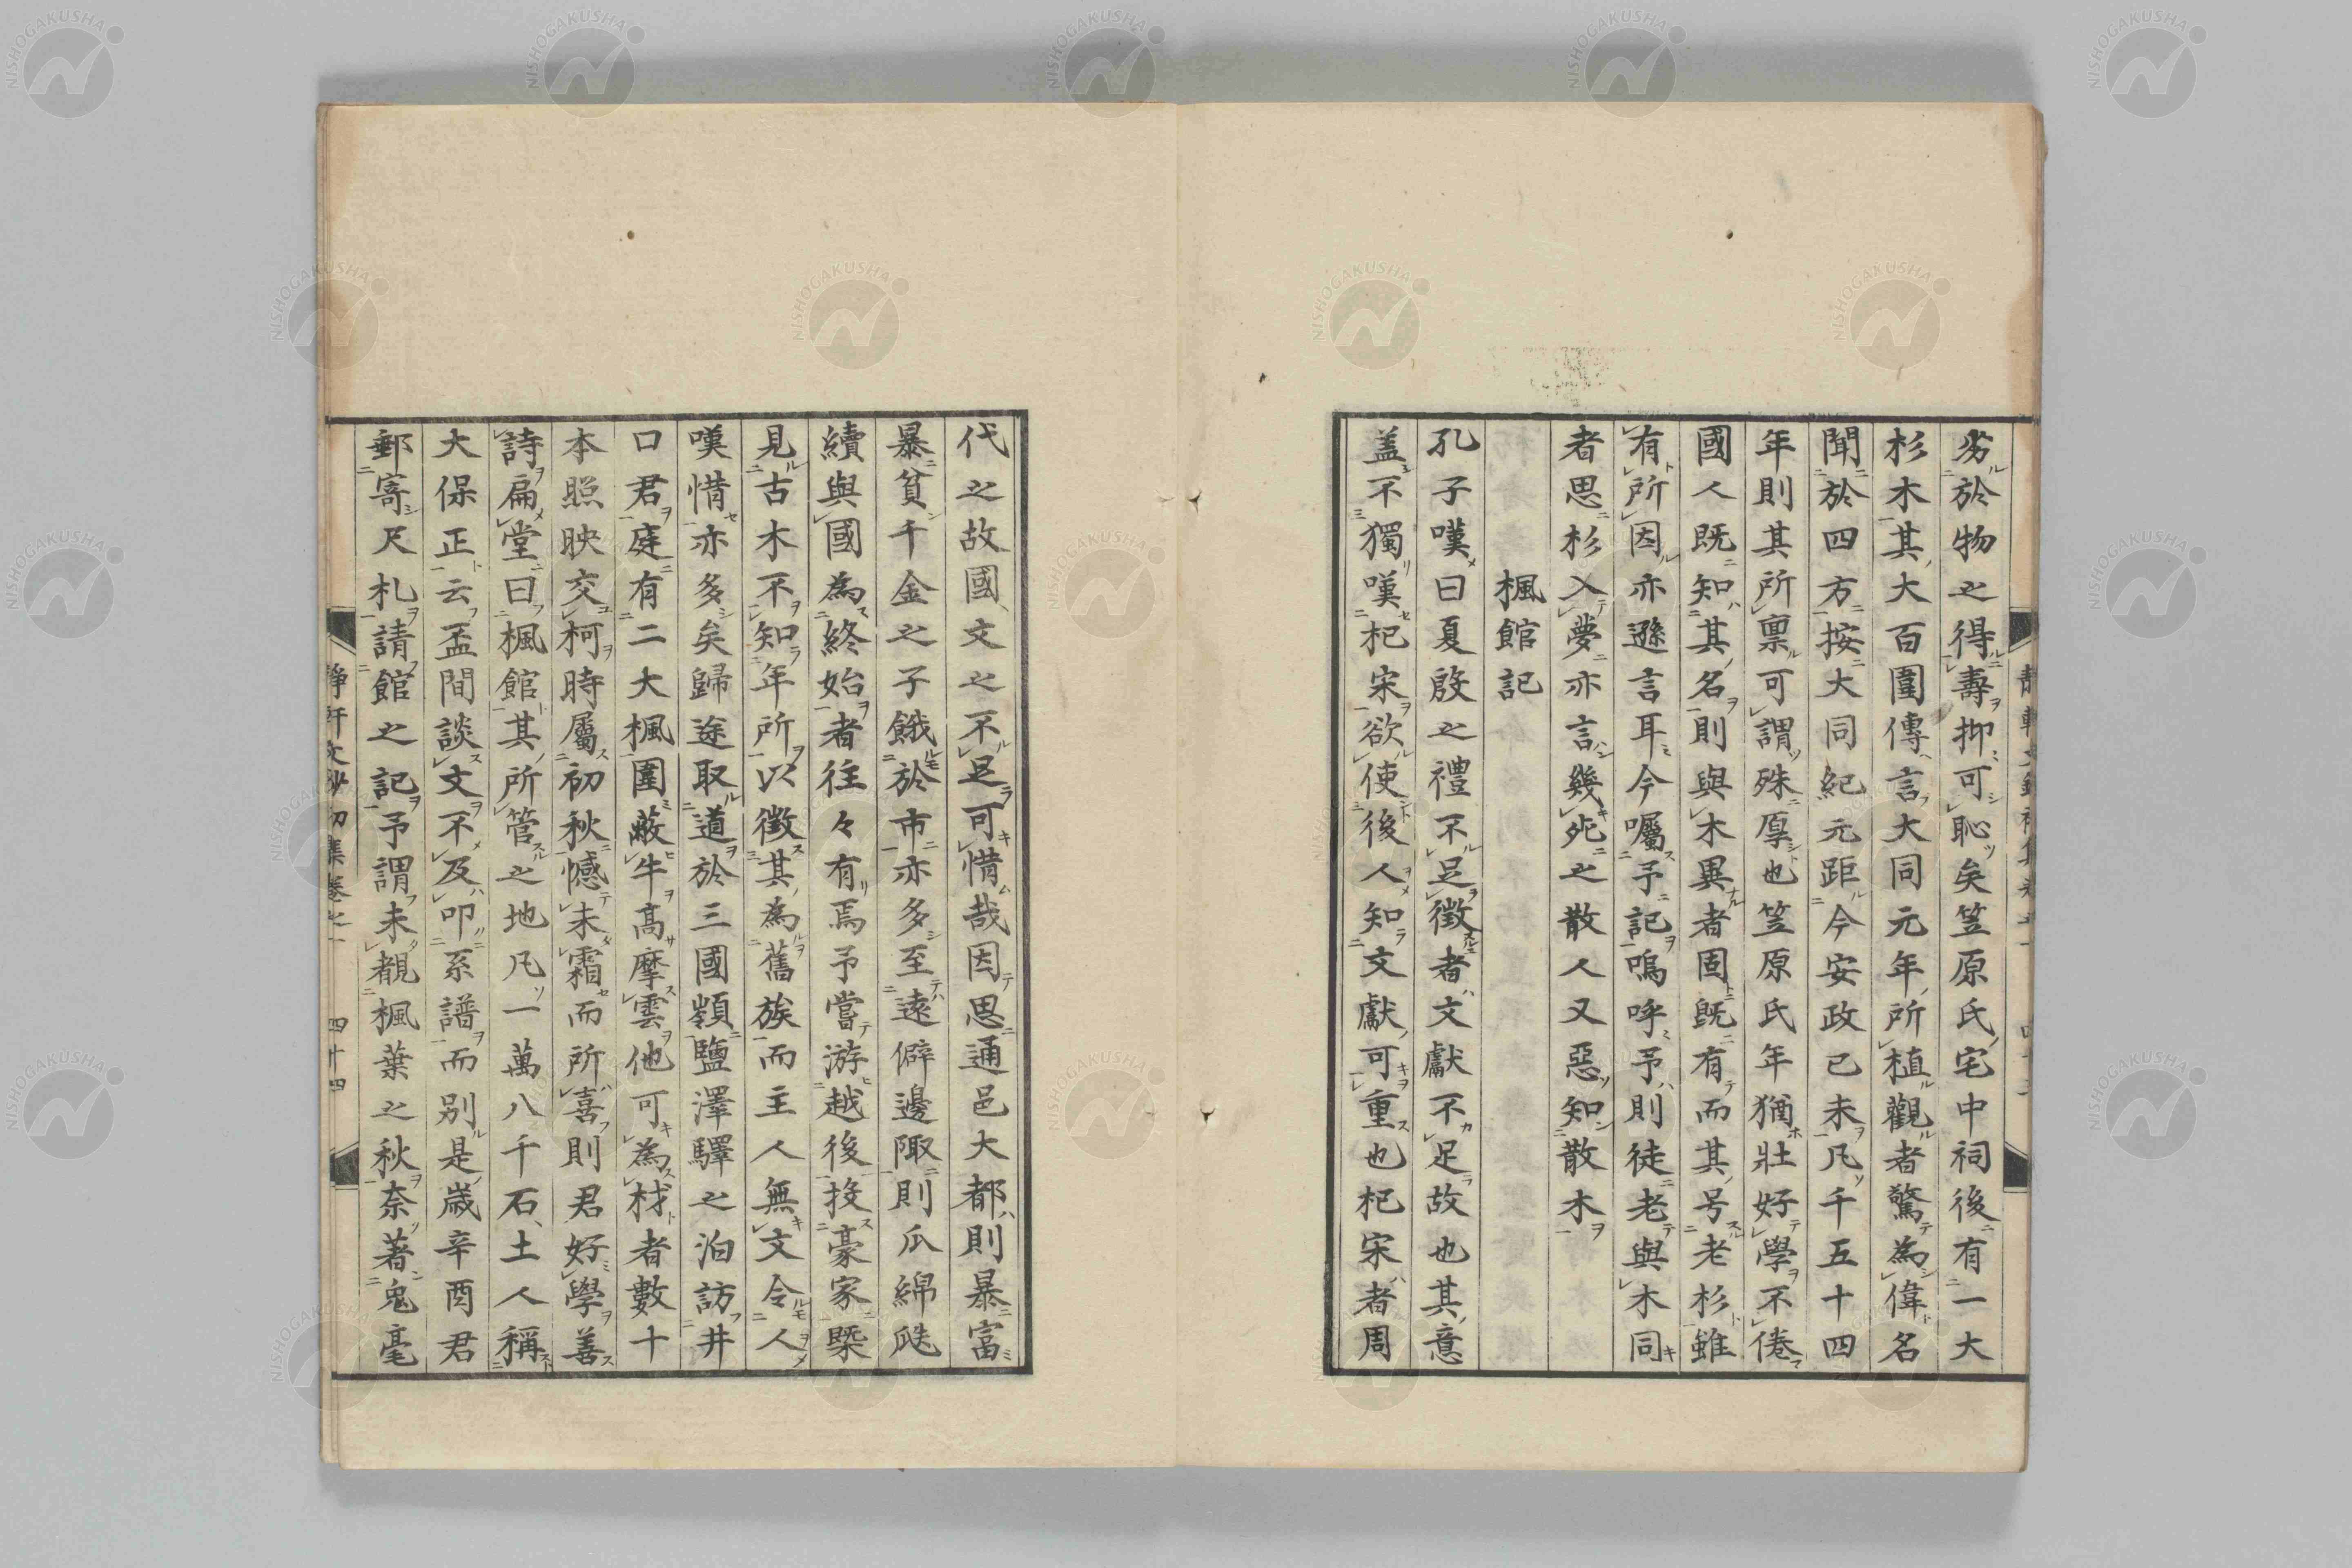 劣於物之得壽抑可恥矣笠原氏宅中祠後有一大
杉木其大百圍傳言大同元年所植觀者驚為偉名
聞於四方按大同紀元距今安政己未凡千五十四
年則其所禀可謂殊厚也笠原氏年猶壯好學不倦
國人既知其名則與木異者固既有而其号老杉雖
有所因亦遜言耳今囑予記嗚呼予則徒老與木同
者思杉入夢亦言幾死之散人又惡知散木
楓館記
孔子嘆曰夏殷之禮不足徵者文獻不足故也其意
盖不獨嘆杞宋欲使後人知文獻可重也杞宋者周
代之故國文之不足可惜哉因思通邑大都則暴富
暴貧千金之子餓於市亦多至遠僻邊陬則瓜綿瓞
續與國為終始者往々有焉予嘗游越後投豪家槩
見古木不知年所以徵其為舊族而主人無文令人
嘆惜亦多矣歸途取道於三國嶺鹽澤驛之泊訪井
口君庭有二大楓圍蔽牛高摩雲他可為材者數十
本照映交柯時屬初秋憾未霜而所喜則君好學善
詩扁堂曰楓館其所管之地凡一萬八千石土人稱
大保正云盃間談文不及叩系譜而別是歲辛酉君
郵寄尺札請館之記予謂未覩楓葉之秋奈著兔毫
靜軒文鈔初集卷之一 四十四